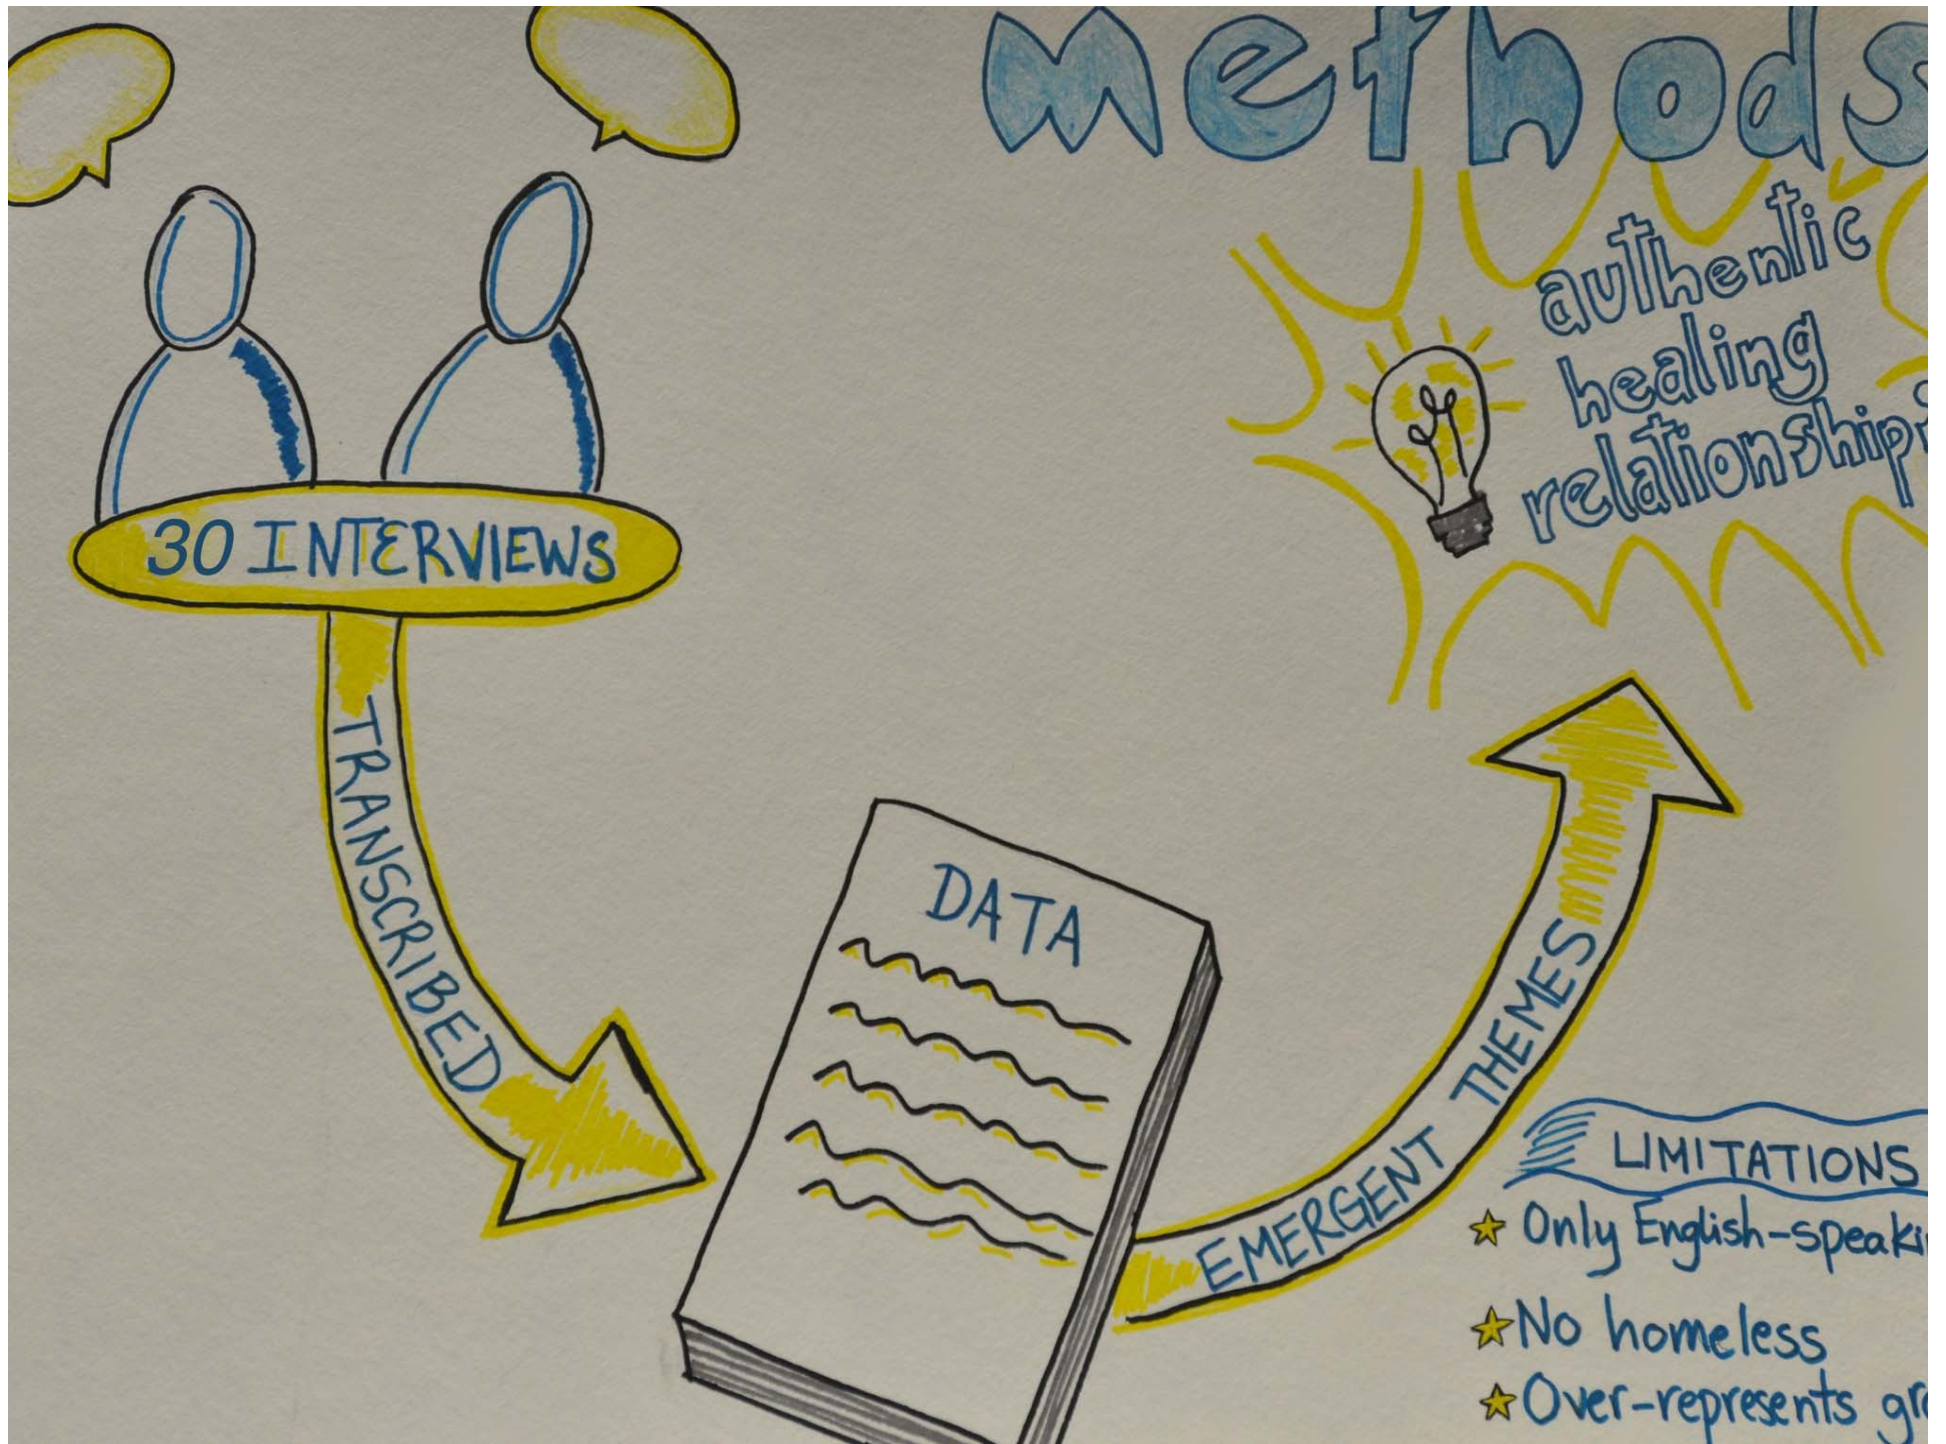 methods
authentic
healing
relationship
30 INTERVIEWS
TRANSCRIBED
DATA
EMERGENT THEMES
LIMITATIONS
Only English-speaki
No homeless
Over-represents gr